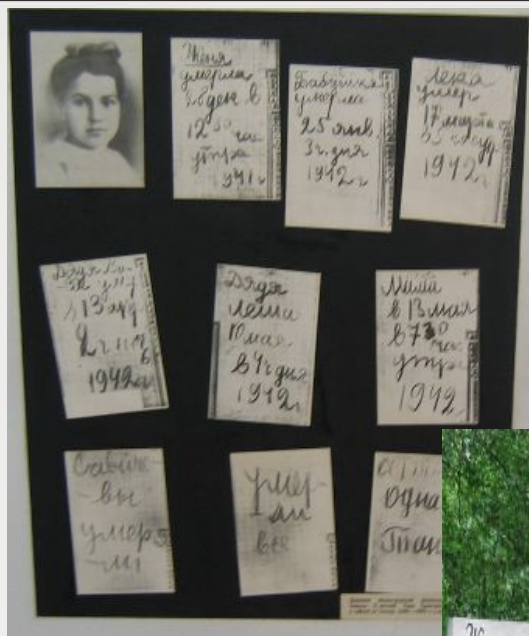 Женя
умерла
28 дек в
12 30 час
утра
1941 г
Бабушка
умерла
25 янв.
3 ч. дня
1942 г
Лека
умер
17 марта
1942 г
Дядя
13 апр
2 ч
1942 г
Дядя
Леша
10 мая
в 4 ч дня
1942 г
Мама
в 13 мая
в 7 30
час
утра
1942
Савиче
вы
умер
ли
умер
ли
все
одна
Тан